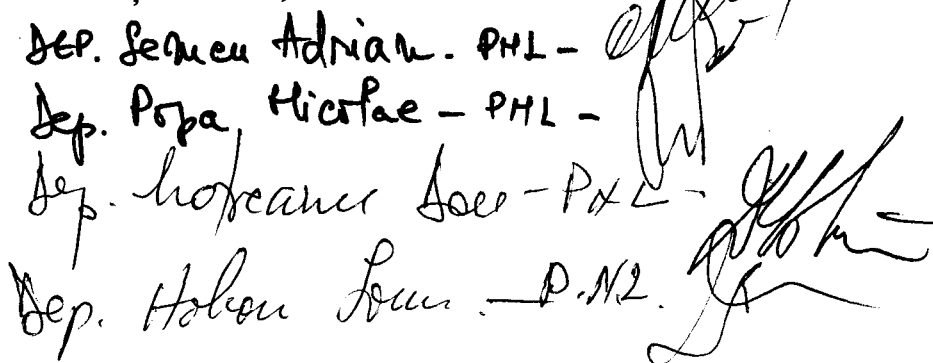 DEP. Semcu Adrian - PNL -
Dep. Popa Nicolae - PNL -
Dep. Dan - PNL -
Dep. Hoban Ioan - P.N.L.